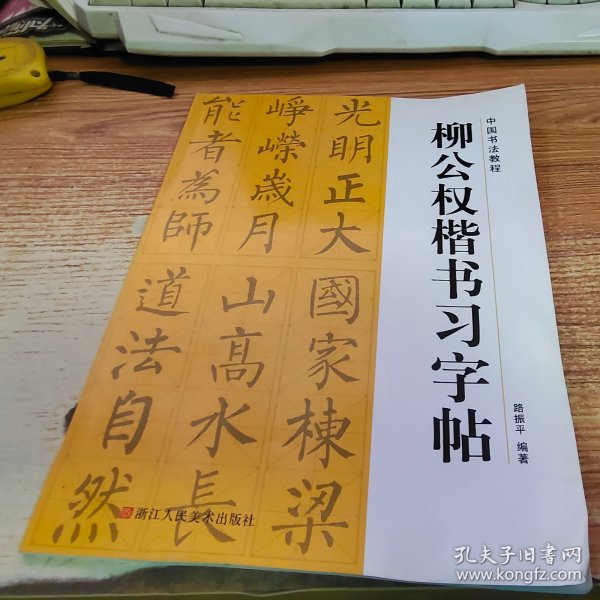 中国书法教程
柳公权楷书习字帖
路振平 编著
光明正大
峥嵘歲月
能者為師
國家棟梁
山高水長
道法自然
浙江人民美术出版社
孔夫子旧书网
www.kongfz.com